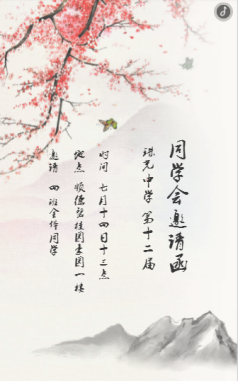 同学会邀请函
珠光中学 第十二届
时间 七月十四日十三点
地点 顺德碧桂园李园一楼
邀请 四班全体同学